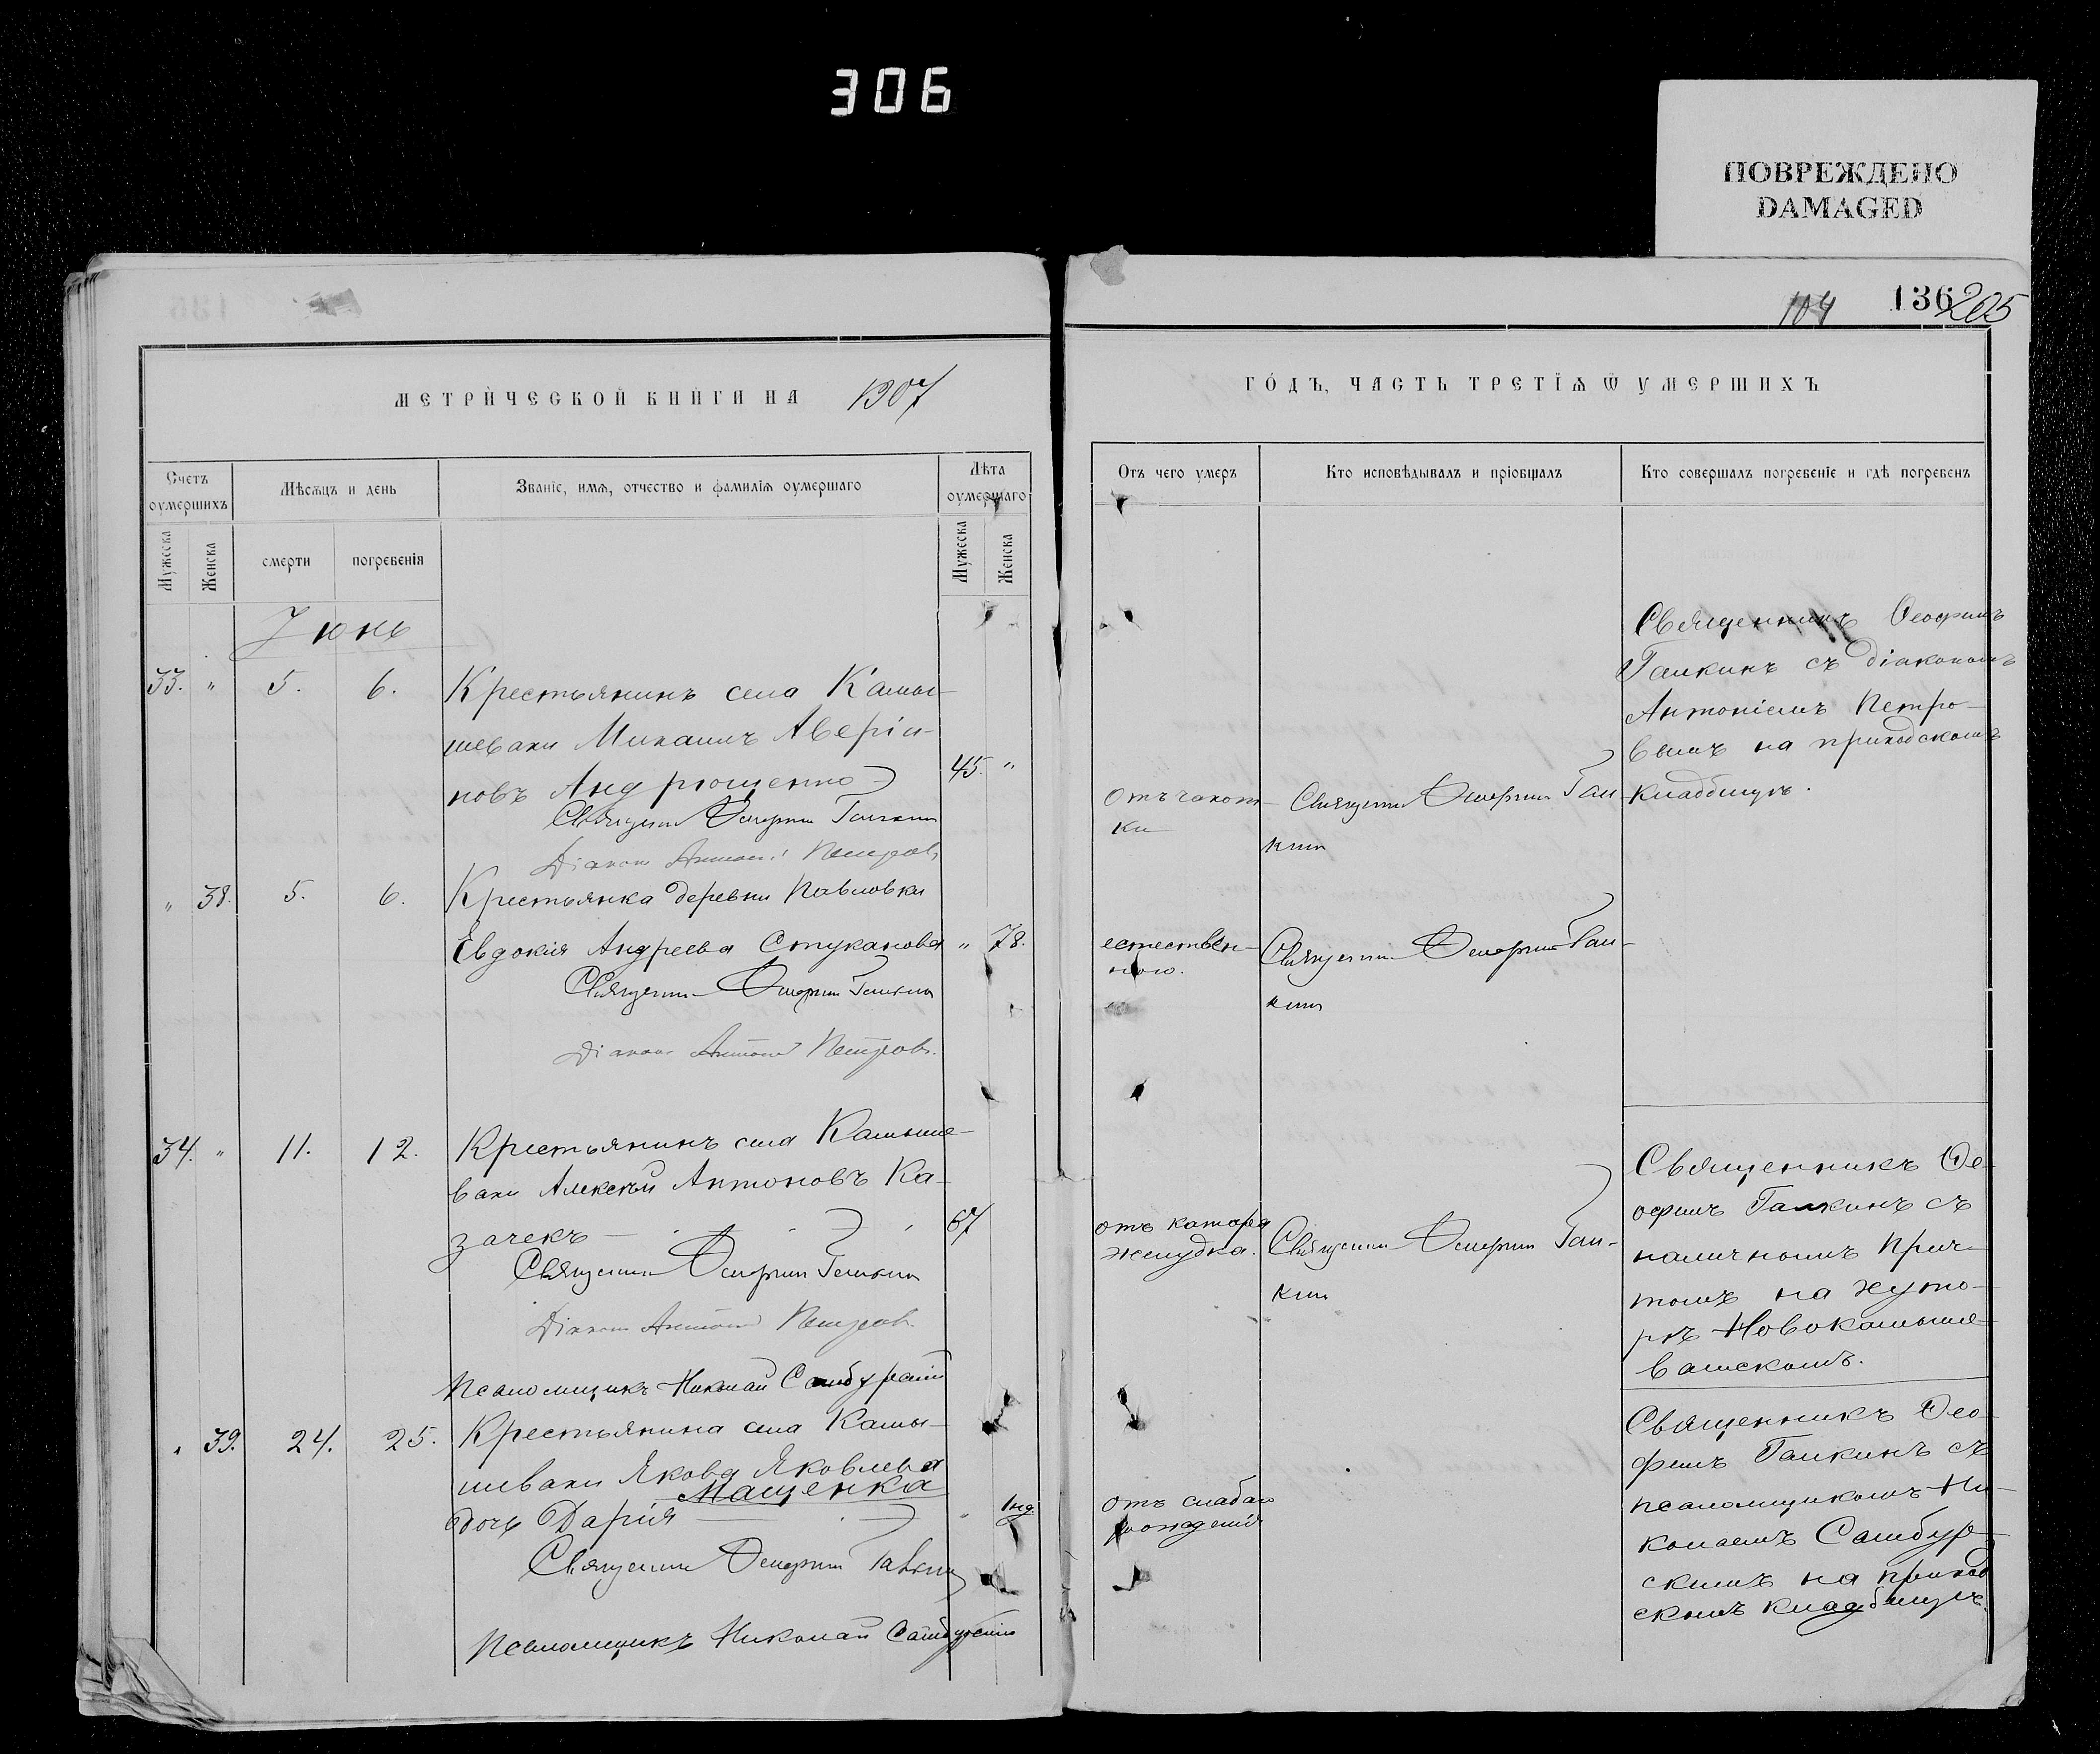 306
ПОВРЕЖДЕНО
DAMAGED
104 136 205
МЕТРИЧЕСКОЙ КНИГИ НА 1907
ГОДЪ, ЧАСТЬ ТРЕТІЯ Ѿ УМЕРШИХЪ
Счетъ оумершихъ
Мѣсяцъ и день
Званіе, имя, отчество и фамилія оумершаго
Лѣта оумершаго
Мужеска
Женска
смерти
погребенія
Мужеска
Женска
Отъ чего умеръ
Кто исповѣдывалъ и пріобщалъ
Кто совершалъ погребеніе и гдѣ погребенъ
Іюнь
33. " 5. 6.
Крестьянинъ села Камы-
шевахи Михаилъ Аверіа-
новъ Андрющенко
45. "
Священникъ Ѳеофилъ Галкинъ
Діаконъ Антоній Петровъ
отъ чахот-
ки
Священникъ Ѳеофилъ Гал-
кинъ
Священникъ Ѳеофилъ
Галкинъ съ діакономъ
Антоніемъ Петро-
вымъ на приходскомъ
кладбищѣ.
" 38. 5. 6.
Крестьянка деревни Павловки
Евдокія Андреева Стуканова
" 78.
Священникъ Ѳеофилъ Галкинъ
Діаконъ Антоній Петровъ.
естествен-
ною.
Священникъ Ѳеофилъ Гал-
кинъ
34. " 11. 12.
Крестьянинъ села Камыше-
вахи Алексѣй Антоновъ Ка-
зачекъ
67
Священникъ Ѳеофилъ Галкинъ
Діаконъ Антоній Петровъ.
Псаломщикъ Николай Самбурскій
отъ катара
желудка.
Священникъ Ѳеофилъ Гал-
кинъ
Священникъ Ѳе-
офилъ Галкинъ съ
наличнымъ прич-
томъ на хуто-
рѣ Новокамыше-
вахскомъ.
" 39. 24. 25.
Крестьянина села Камы-
шевахи Якова Яковлева
Мащенка
дочь Дарія
" 1 нд
Священникъ Ѳеофилъ Галкинъ
Псаломщикъ Николай Самбурскій
отъ слабаго
рожденія
Священникъ Ѳео-
филъ Галкинъ съ
псаломщикомъ Ни-
колаемъ Самбур-
скимъ на приход
скомъ кладбищѣ.